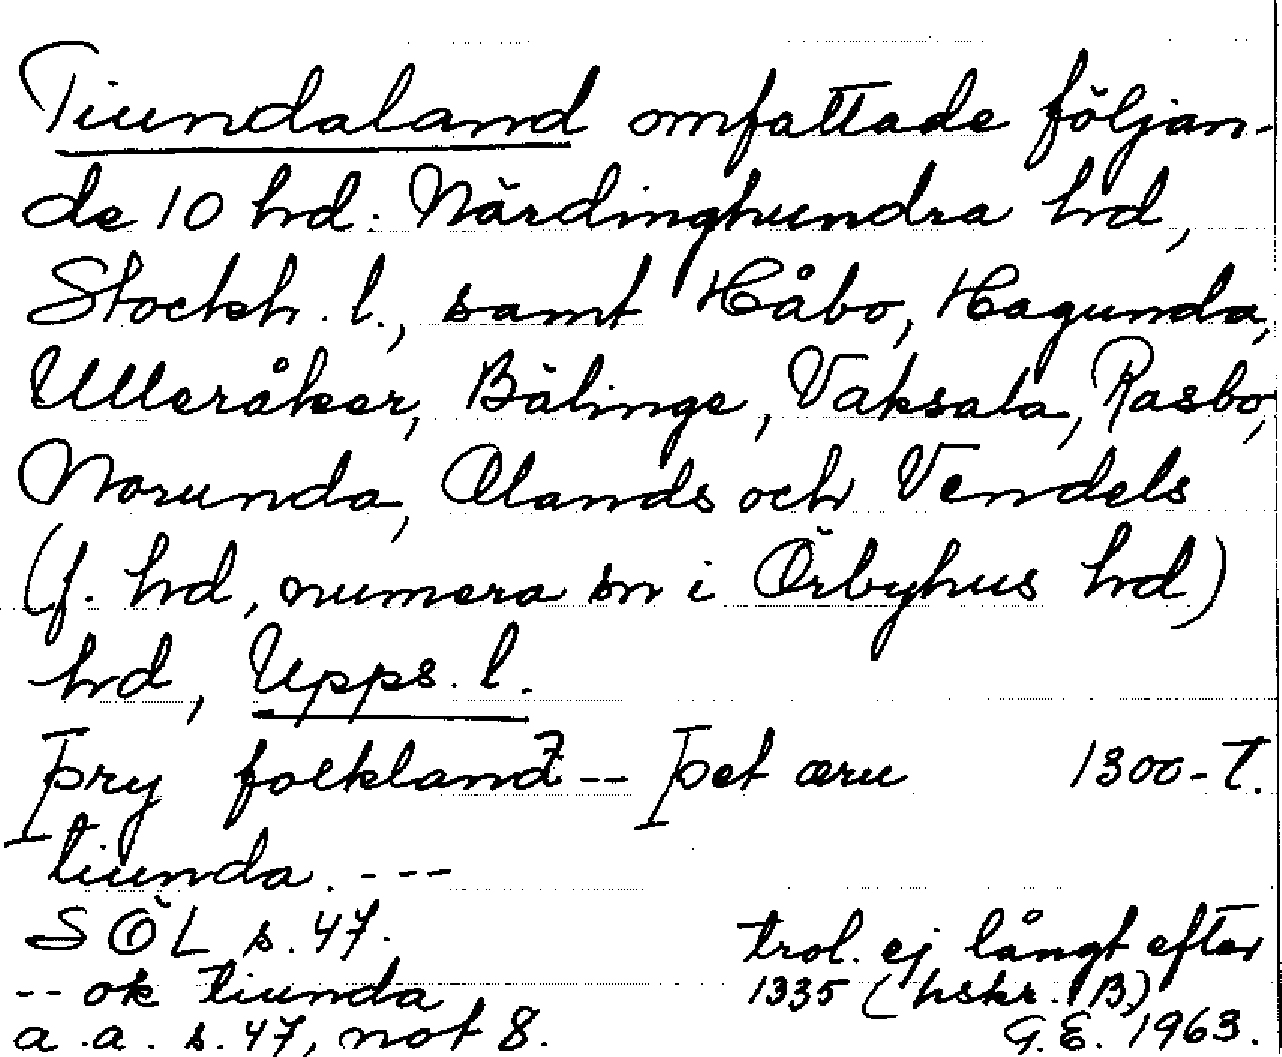 Tiundaland omfattade följan-
de 10 hrd: Närdinghundra hrd,
Stockh. l., samt Håbo, Hagunda,
Ulleråker, Bälinge, Vaksala, Rasbo,
Norunda, Olands och Vendels
(f. hrd, numera sn i Örbyhus hrd)
hrd, Upps. l.
Þry folkland -- Þet æru 1300-t.
tiunda. ---
SÖL s. 47. trol. ej långt efter
-- ok tiunda 1335 (hskr. B)
a.a. s. 47, not 8. G.E. 1963.